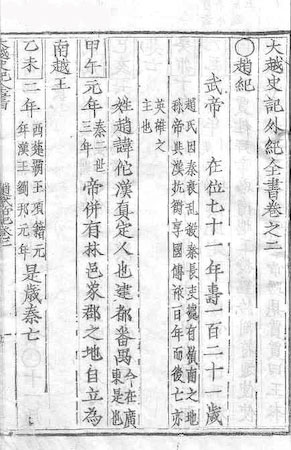 大越史記外紀全書卷之二
○趙紀
武帝　在位七十一年壽一百二十一歲
趙氏因秦衰亂殺秦長吏據有嶺南之地
稱帝與漢抗衡享國傳祚百年而後亡亦
英雄之
主也
姓趙諱佗漢真定人也建都番禺今在廣東是也
甲午元年秦二世三年帝併有林邑象郡之地自立為
南越王
乙未二年西楚霸王項籍元年漢王劉邦元年是歲秦亡